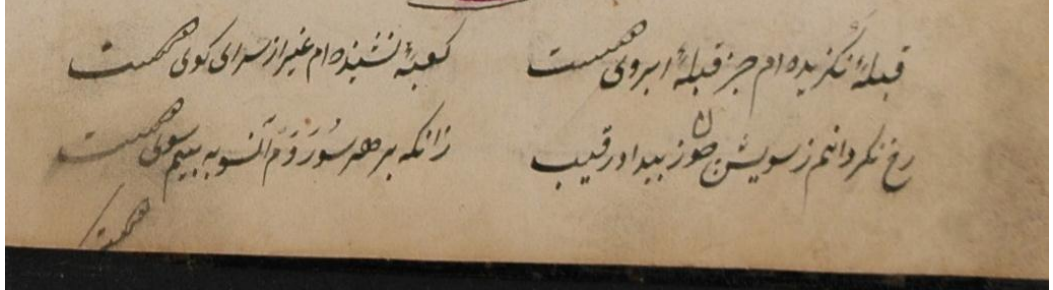 قبلهٔ نگزیده ام جز قبلهٔ ابروی هست کعبهٔ نشنیده ام غیر از سرای کوی هست
رخ نگردانم ز سویش چون ز بیداد رقیب زانکه بر هر سو رَوَم آنسو به بینم سوی هست
هست